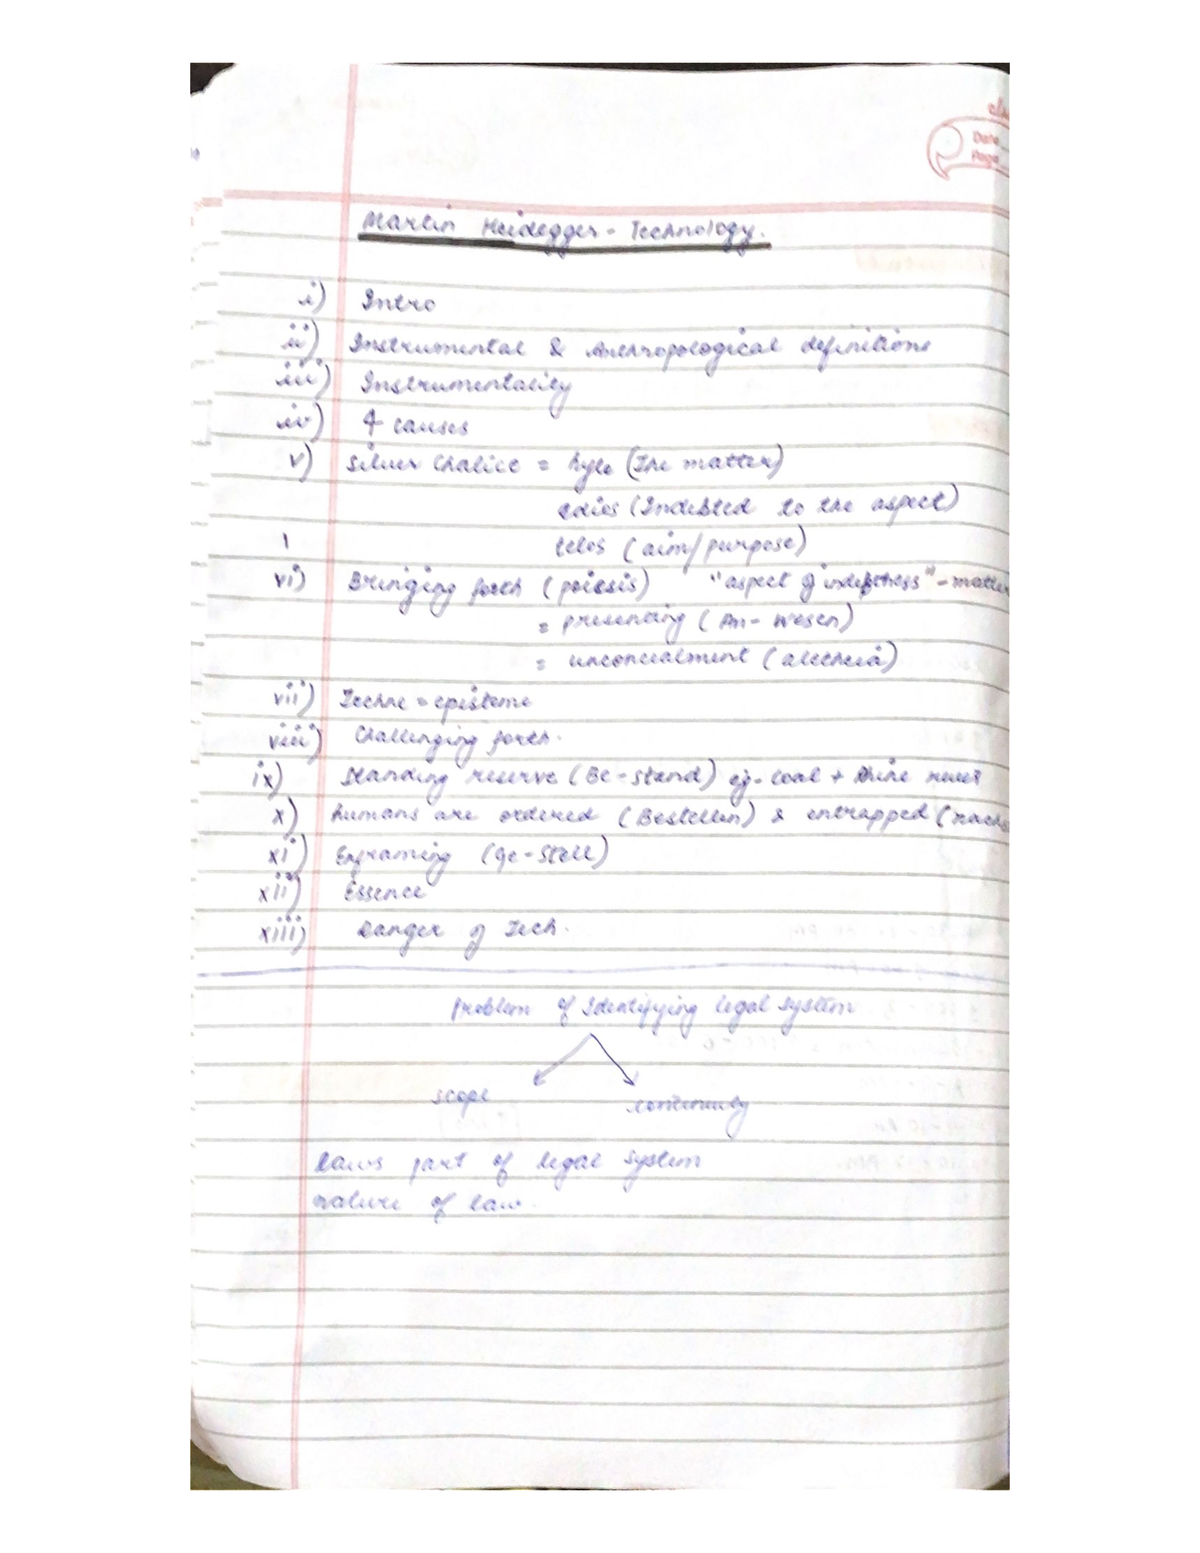 Date
Page
Martin Heidegger - Technology.
i) Intro
ii) Instrumental & Anthropological definitions
iii) Instrumentality
iv) 4 causes
v) Silver Chalice = hyle (The matter)
edios (Indebted to the aspect)
telos (aim/purpose)
vi) Bringing forth (poiesis) "aspect of" - matter
= presencing (An-wesen)
= unconcealment (aletheia)
vii) Techne = episteme
viii) Challenging forth.
ix) Standing reserve (Be-stand) eg- Coal + Rhine river
x) humans are ordered (Bestellen) & entrapped
xi) Enframing (Ge-Stell)
xii) Essence
xiii) Danger of Tech.
Problem of Identifying legal system
scope continuity
Laws part of legal system
nature of law.